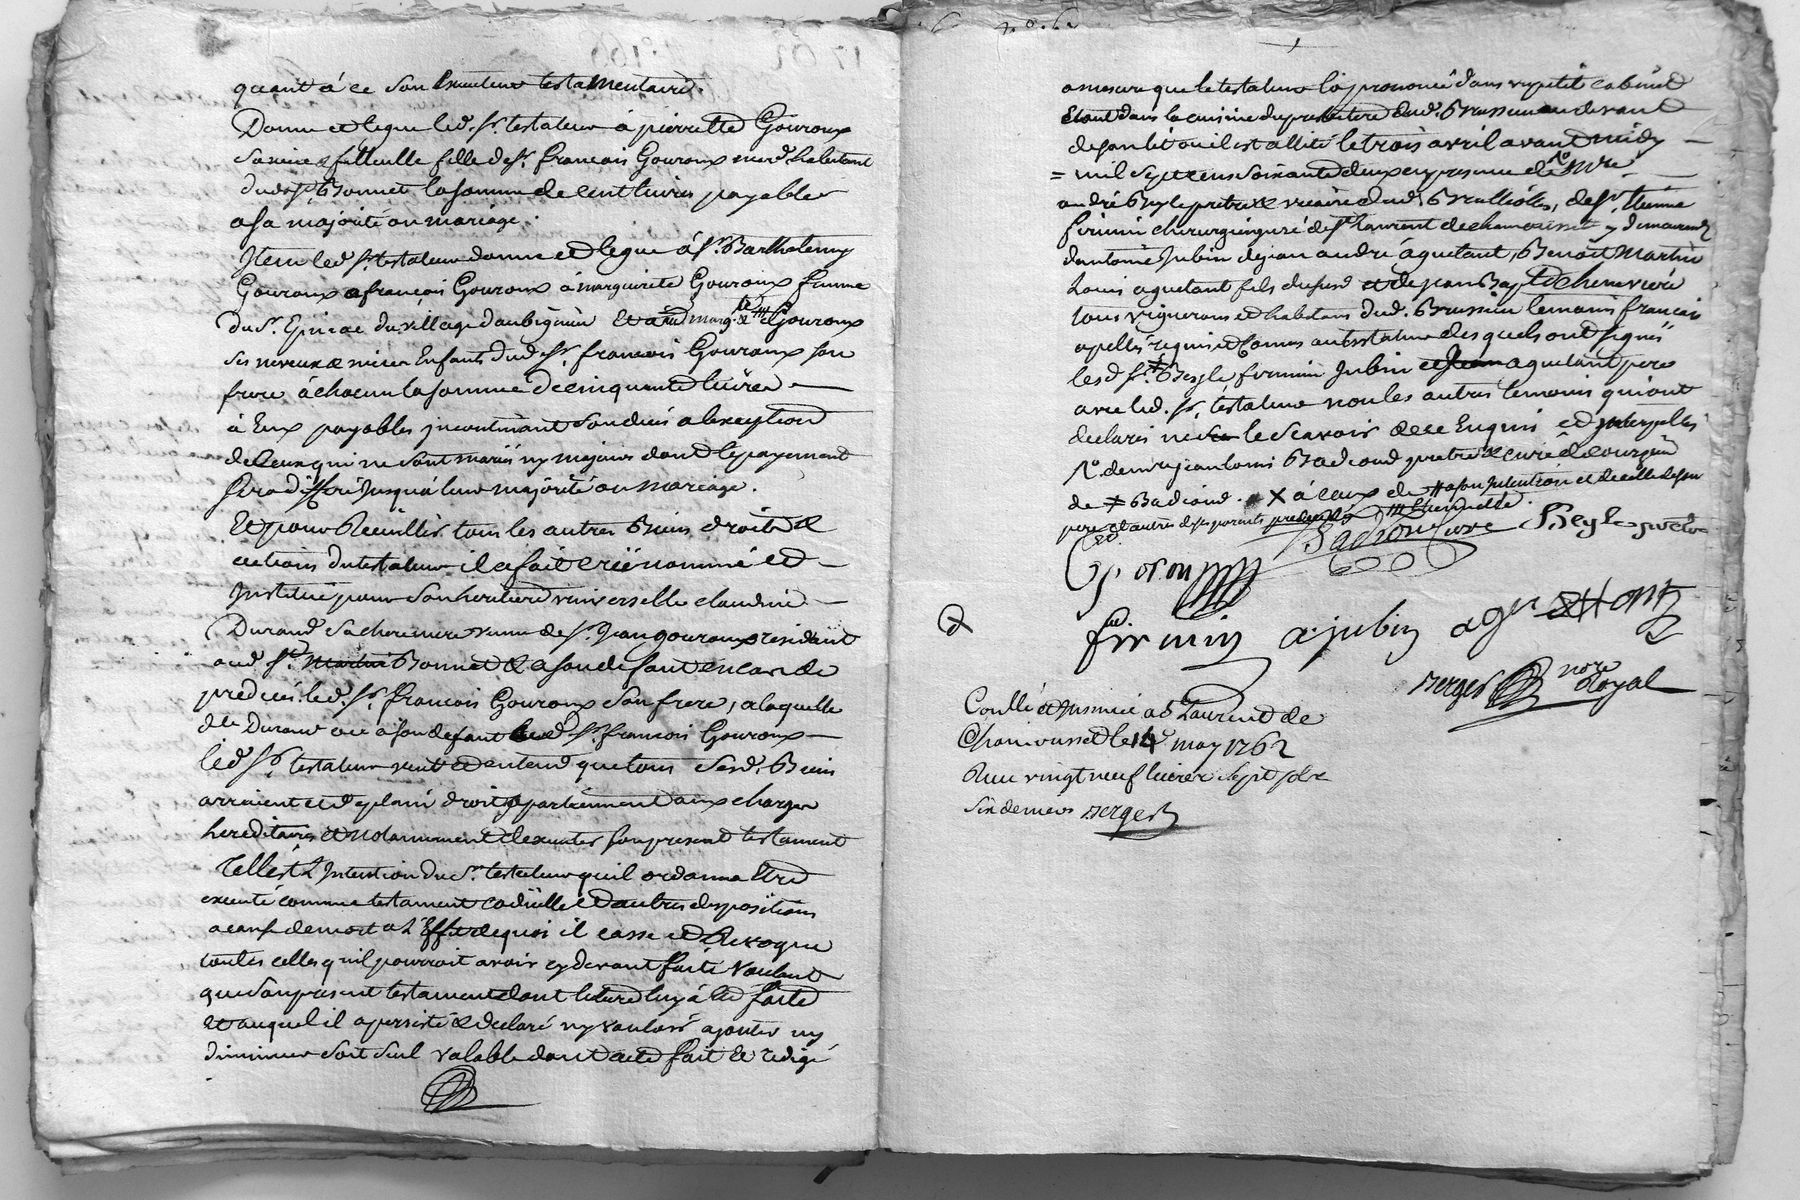 quant à ce son Executeur testamentaire.
Donne et legue led. Sr. testateur à pierrette Gouroux
sa niece & filleulle fille de Sr. francois Gouroux mard habitant
dud. St. Bonnet la somme de cent livres payable
a sa majorité ou mariage.
Item led Sr. testateur donne et legue à Sr. Barthelemy
Gouroux a francois Gouroux à marguirite Gouroux femme
du Sr. Epinac du village daubignin et a Gouroux
ses neveux & nieces Enfants dud. Sr. francois Gouroux son
frere à chacun la somme de cinquante livres
à Eux payables incontinant son deces a lexception
de Ceux qui ne sont mariés ny majeurs dont le payement
sera differé jusqu'à leur majorité ou mariage.
Et pour Recuillir tous les autres Biens droits &
actions du testateur il a fait créé nommé et
Institué pour son heritiere universelle claudine
Durand sa cherre mere veuve de Sr. Jean gouroux residant
aud St. Bonnet & a son defaut en cas de
predeces led. Sr. francois Gouroux son frere, a laquelle
de Durand ou à son defaut aud Sr. francois Gouroux
led Sr. testateur veut et entend que tous sesd. Biens
arrivent et de plain droit apartiennent aux charges
hereditaires et notamment dexecuter son present testament
Telle est L'Intention du Sr. testateur quil ordonne Etre
executé comme testament codicille et autres dispositions
a cause de mort a L'Effet de quoi il casse et Revoque
toutes celles qu'il pourroit avoir cy devant faite Voulant
que son present testament dont lecture luy à eté faite
et auquel il a persisté & declaré ny vouloir ajouter ny
diminuer soit seul valable dont acte fait et redigé
a mesure que le testateur l'a prononcé dans un petit cabinet
Etant dans la cuisine du presbitere dud. Brussieu au devant
de son lit ou il est allité le trois avril avant midy
= mil sept cens soixante deux en presence de Mre
andré Beyle pretre & vicaire dud. Brullioles, de Sr. Etienne
firmin chirurgien juré de St laurent de chamousset y demeurant
d'antoine Jubin de jean andré aguetant, Benoit Martin
Louis aguetant fils du susd et de jean Bapt
tous vignerons et habitans dud. Brussieu temoins francais
apellés requis et connus au testateur desquels ont signé
lesd. Sr. Beyle, firmin Jubin et Jean aguetant pere
avec led. Sr. testateur non les autres temoins qui ont
declaré ne le scavoir de ce Enquis et interpellés
de Badioud. X à ceux de son Intention et de celle de son
pere et autres de ses parents
Badioud Cure Beyle pretre
Gouroux
firmin a jubin agu
verger nore Royal
Conllé et Insinué a St Laurent de
Chamousset le 14 may 1762
Recu vingt neuf livres sept sols
six deniers verger